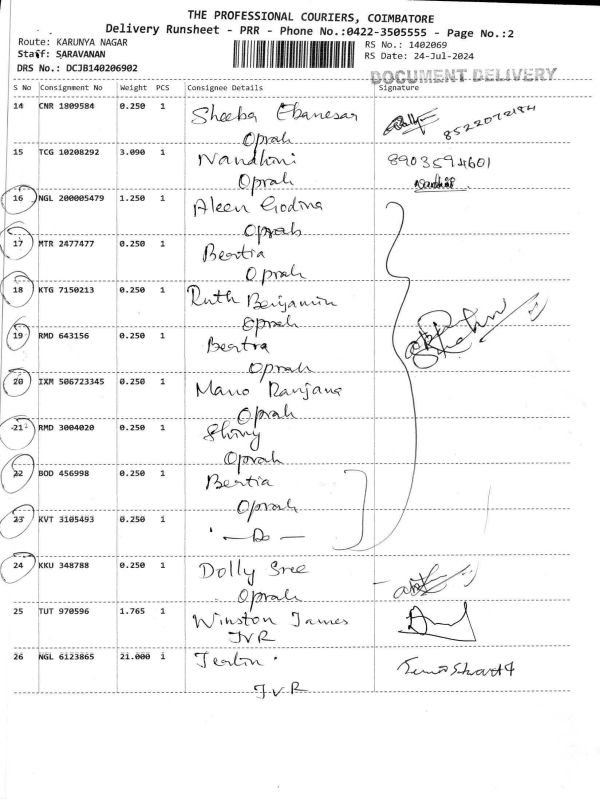 THE PROFESSIONAL COURIERS, COIMBATORE
Delivery Runsheet - PRR - Phone No.:0422-3505555 - Page No.:2
Route: KARUNYA NAGAR
RS No.: 1402069
Staff: SARAVANAN
RS Date: 24-Jul-2024
DRS No.: DCJB140206902
DOCUMENT DELIVERY
S No Consignment No Weight PCS Consignee Details Signature
14 CNR 1809584 0.250 1 Sheeba Ebanesar
Oprah 8522072194
15 TCG 10208292 3.090 1 Nandhini 8903594601
Oprah Nandhini
16 NGL 200005479 1.250 1 Aleen Godina
Oprah
17 MTR 2477477 0.250 1 Bertia
Oprah
18 KTG 7150213 0.250 1 Ruth Benjamin
Oprah
19 RMD 643156 0.250 1 Bertra
Oprah
20 IXM 506723345 0.250 1 Mano Ranjana
Oprah
21 RMD 3004020 0.250 1 Shiny
Oprah
22 BOD 456998 0.250 1 Bertia
Oprah
23 KVT 3105493 0.250 1 - Do -
24 KKU 348788 0.250 1 Dolly Sree
Oprah
25 TUT 970596 1.765 1 Winston James
JVR
26 NGL 6123865 21.000 1 Jerlin
JVR